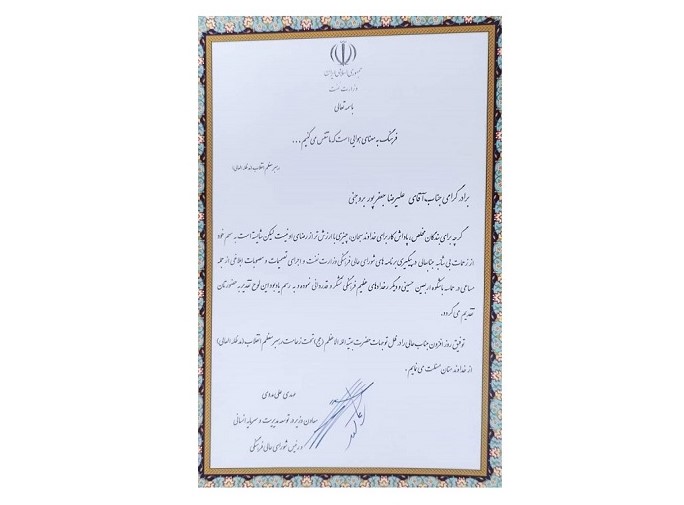 جمهوری اسلامی ایران
وزارت نفت
باسمه تعالی
فرهنگ به معنای هوایی است که ما تنفس می کنیم ...
رهبر معظم انقلاب (مد ظله العالی)
برادر گرامی جناب آقای علیرضا جعفرپور بروجنی
گرچه برای بندگان مخلص، پاداش کار برای خداوند سبحان، چیزی با ارزش تر از رضای او نیست لیکن شایسته است به سهم خود
از زحمات بی شائبه جنابعالی در پیگیری برنامه های شورای عالی فرهنگی وزارت نفت و اجرای تصمیمات و مصوبات ابلاغی از جمله
مساعی در حماسه باشکوه اربعین حسینی و دیگر رخدادهای عظیم فرهنگی تشکر و قدردانی نموده و به رسم یادبود این لوح تقدیر به حضورتان
تقدیم می گردد.
توفیق روز افزون جناب عالی را در ظل توجهات حضرت بقیه الله الاعظم (عج) تحت زعامت رهبر معظم انقلاب (مد ظله العالی)
از خداوند منان مسئلت می نمایم.
مهدی علی مددی
معاون وزیر در توسعه مدیریت و سرمایه انسانی
و رئیس شورای عالی فرهنگی